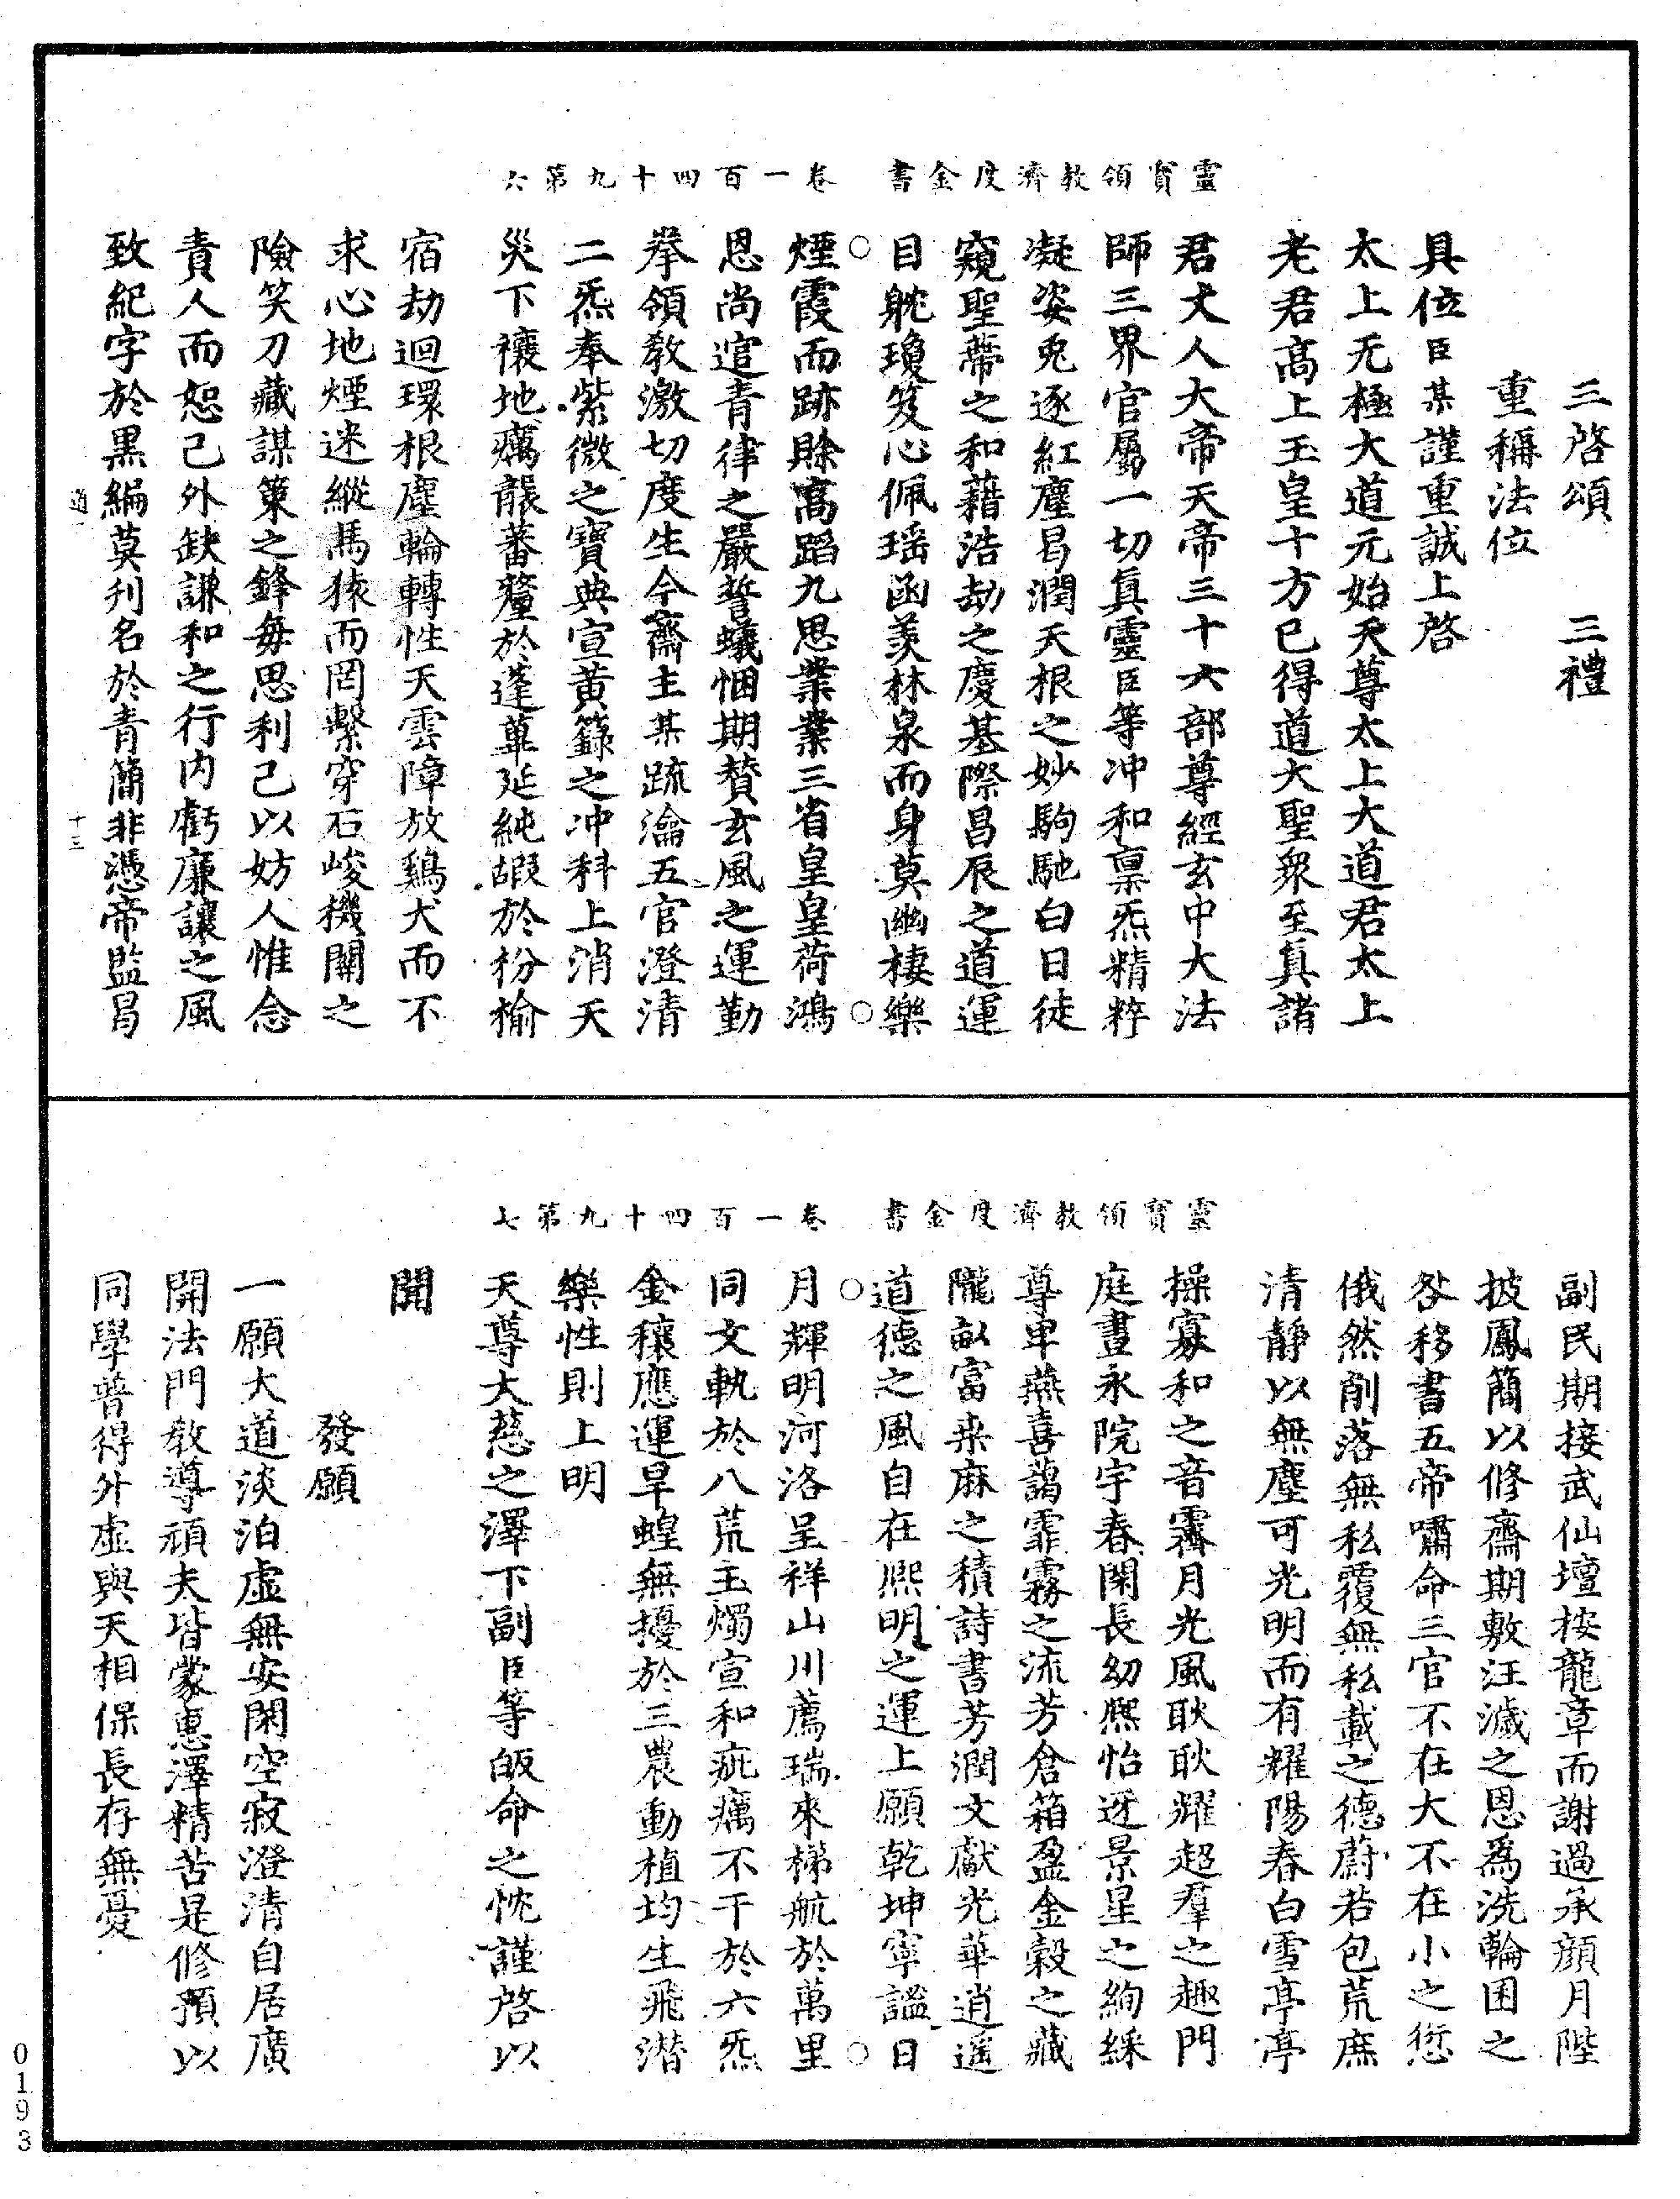 靈寶領教濟度金書 卷一百四十九第六
三啓頌 三禮
重稱法位
具位臣某謹重誠上啓
太上无極大道元始天尊太上大道君太上
老君高上玉皇十方已得道大聖衆至真諸
君丈人大帝天帝三十六部尊經玄中大法
師三界官屬一切真靈臣等沖和禀炁精粹
凝姿兎逐紅塵曷潤天根之妙駒馳白日徒
窺聖蔕之和藉浩劫之慶基際昌辰之道運
目躭瓊笈心佩瑶函羨林泉而身莫幽棲樂
煙霞而跡賒高蹈九思業業三省皇皇荷鴻
恩尚逭青律之嚴誓蟻悃期賛玄風之運勤
拳領教激切度生今齋主某疏瀹五官澄清
二炁奉紫微之寶典宣黃籙之沖科上消天
災下禳地癘龔蕃釐於蓬蓽延純嘏於枌榆
宿劫迴環根塵輪轉性天雲障放鷄犬而不
求心地煙迷縱馬猿而罔繫穿石峻機關之
險笑刀藏謀策之鋒每思利己以妨人惟念
責人而恕己外缺謙和之行內虧廉讓之風
致紀字於黑編莫刋名於青簡非憑帝監曷
道一 十三
靈寶領教濟度金書 卷一百四十九第七
副民期接武仙壇按龍章而謝過承顔月陛
披鳳簡以修齋期敷汪濊之恩爲洗輪囷之
咎移書五帝嘯命三官不在大不在小之愆
俄然削落無私覆無私載之德蔚若包荒庶
清靜以無塵可光明而有耀陽春白雪亭亭
操寡和之音霽月光風耿耿耀超羣之趣門
庭晝永院宇春閑長幼熙怡迓景星之絢綵
尊卑燕喜藹霏霧之流芳倉箱盈金榖之藏
隴畝富来麻之積詩書芳潤文獻光華逍遥
道德之風自在熙明之運上願乾坤寧謐日
月輝明河洛呈祥山川薦瑞來梯航於萬里
同文軌於八荒玉燭宣和疵癘不干於六炁
金穰應運旱蝗無擾於三農動植均生飛潛
樂性則上明
天尊大慈之澤下副臣等皈命之忱謹啓以
聞
發願
一願大道淡泊虛無安閑空寂澄清自居廣
開法門敎導頑夫皆蒙惠澤精苦是修預以
同學普得外虛與天相保長存無憂
0193